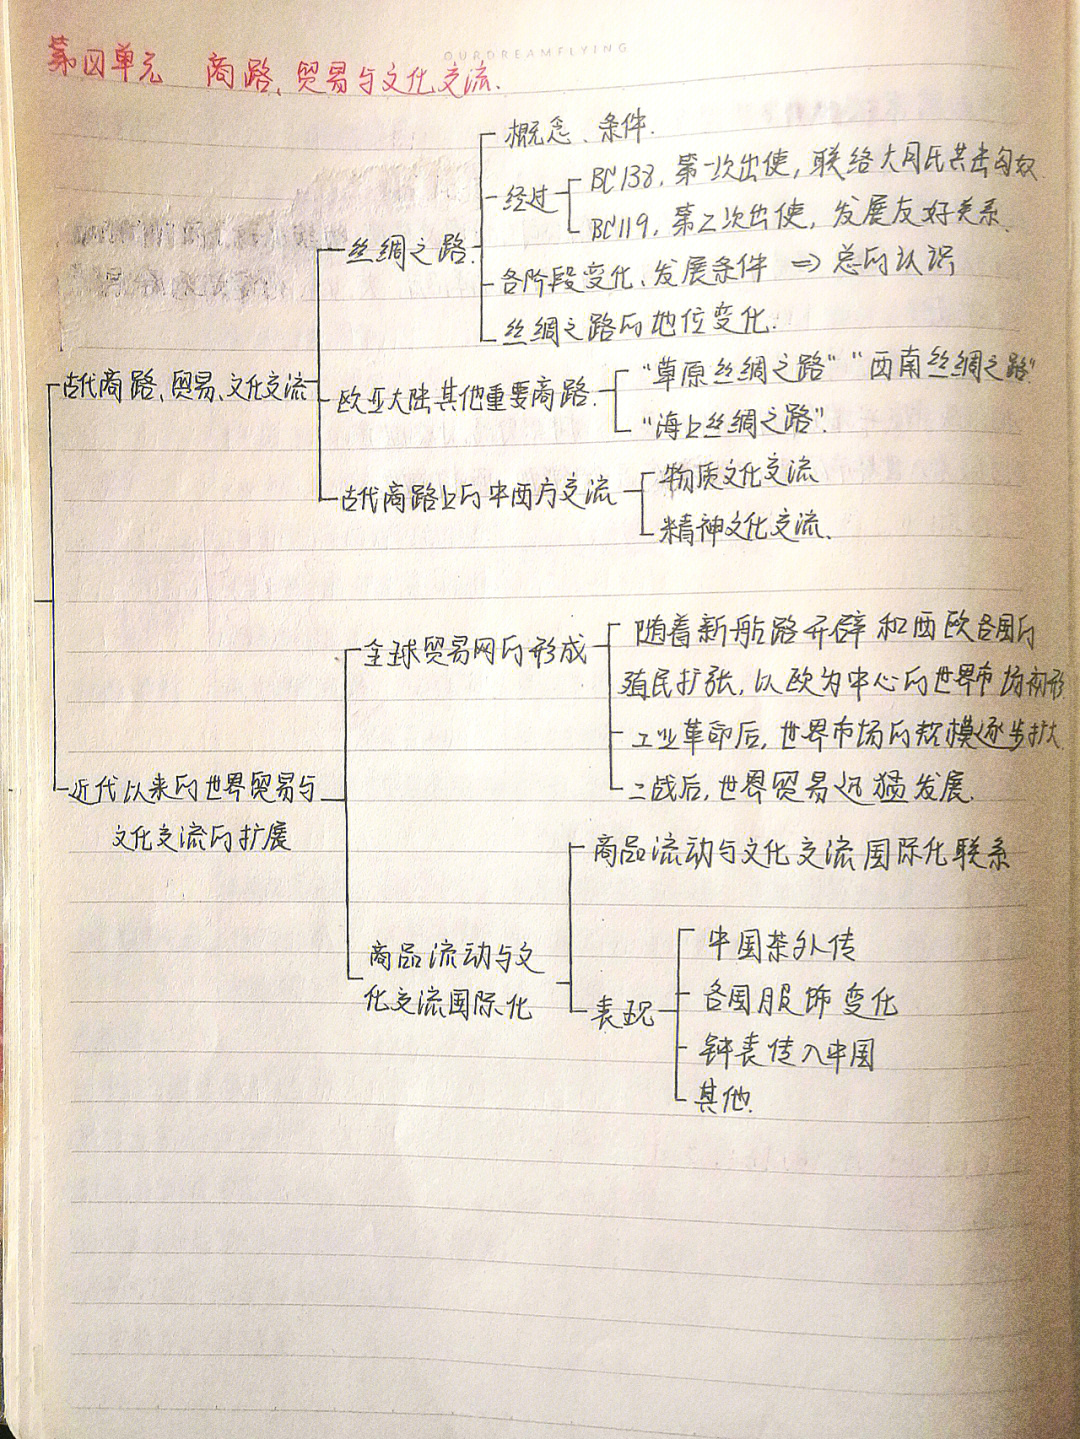 OURDREAMFLYING
第四单元 商路、贸易与文化交流.
概念、条件.
经过
BC138,第一次出使,联络大月氏共击匈奴
BC119,第二次出使,发展友好关系.
丝绸之路.
各阶段变化、发展条件 ⇒ 总的认识
丝绸之路的地位变化.
古代商路、贸易、文化交流
欧亚大陆其他重要商路.
“草原丝绸之路” “西南丝绸之路”
“海上丝绸之路”.
古代商路上的中西方交流
物质文化交流
精神文化交流.
全球贸易网的形成
随着新航路开辟和西欧各国的
殖民扩张,以欧为中心的世界市场初形
工业革命后,世界市场的规模逐步扩大
二战后,世界贸易迅猛发展.
近代以来的世界贸易与
文化交流的扩展
商品流动与文化交流国际化联系
商品流动与文
化交流国际化
表现
中国茶外传
各国服饰变化
钟表传入中国
其他.